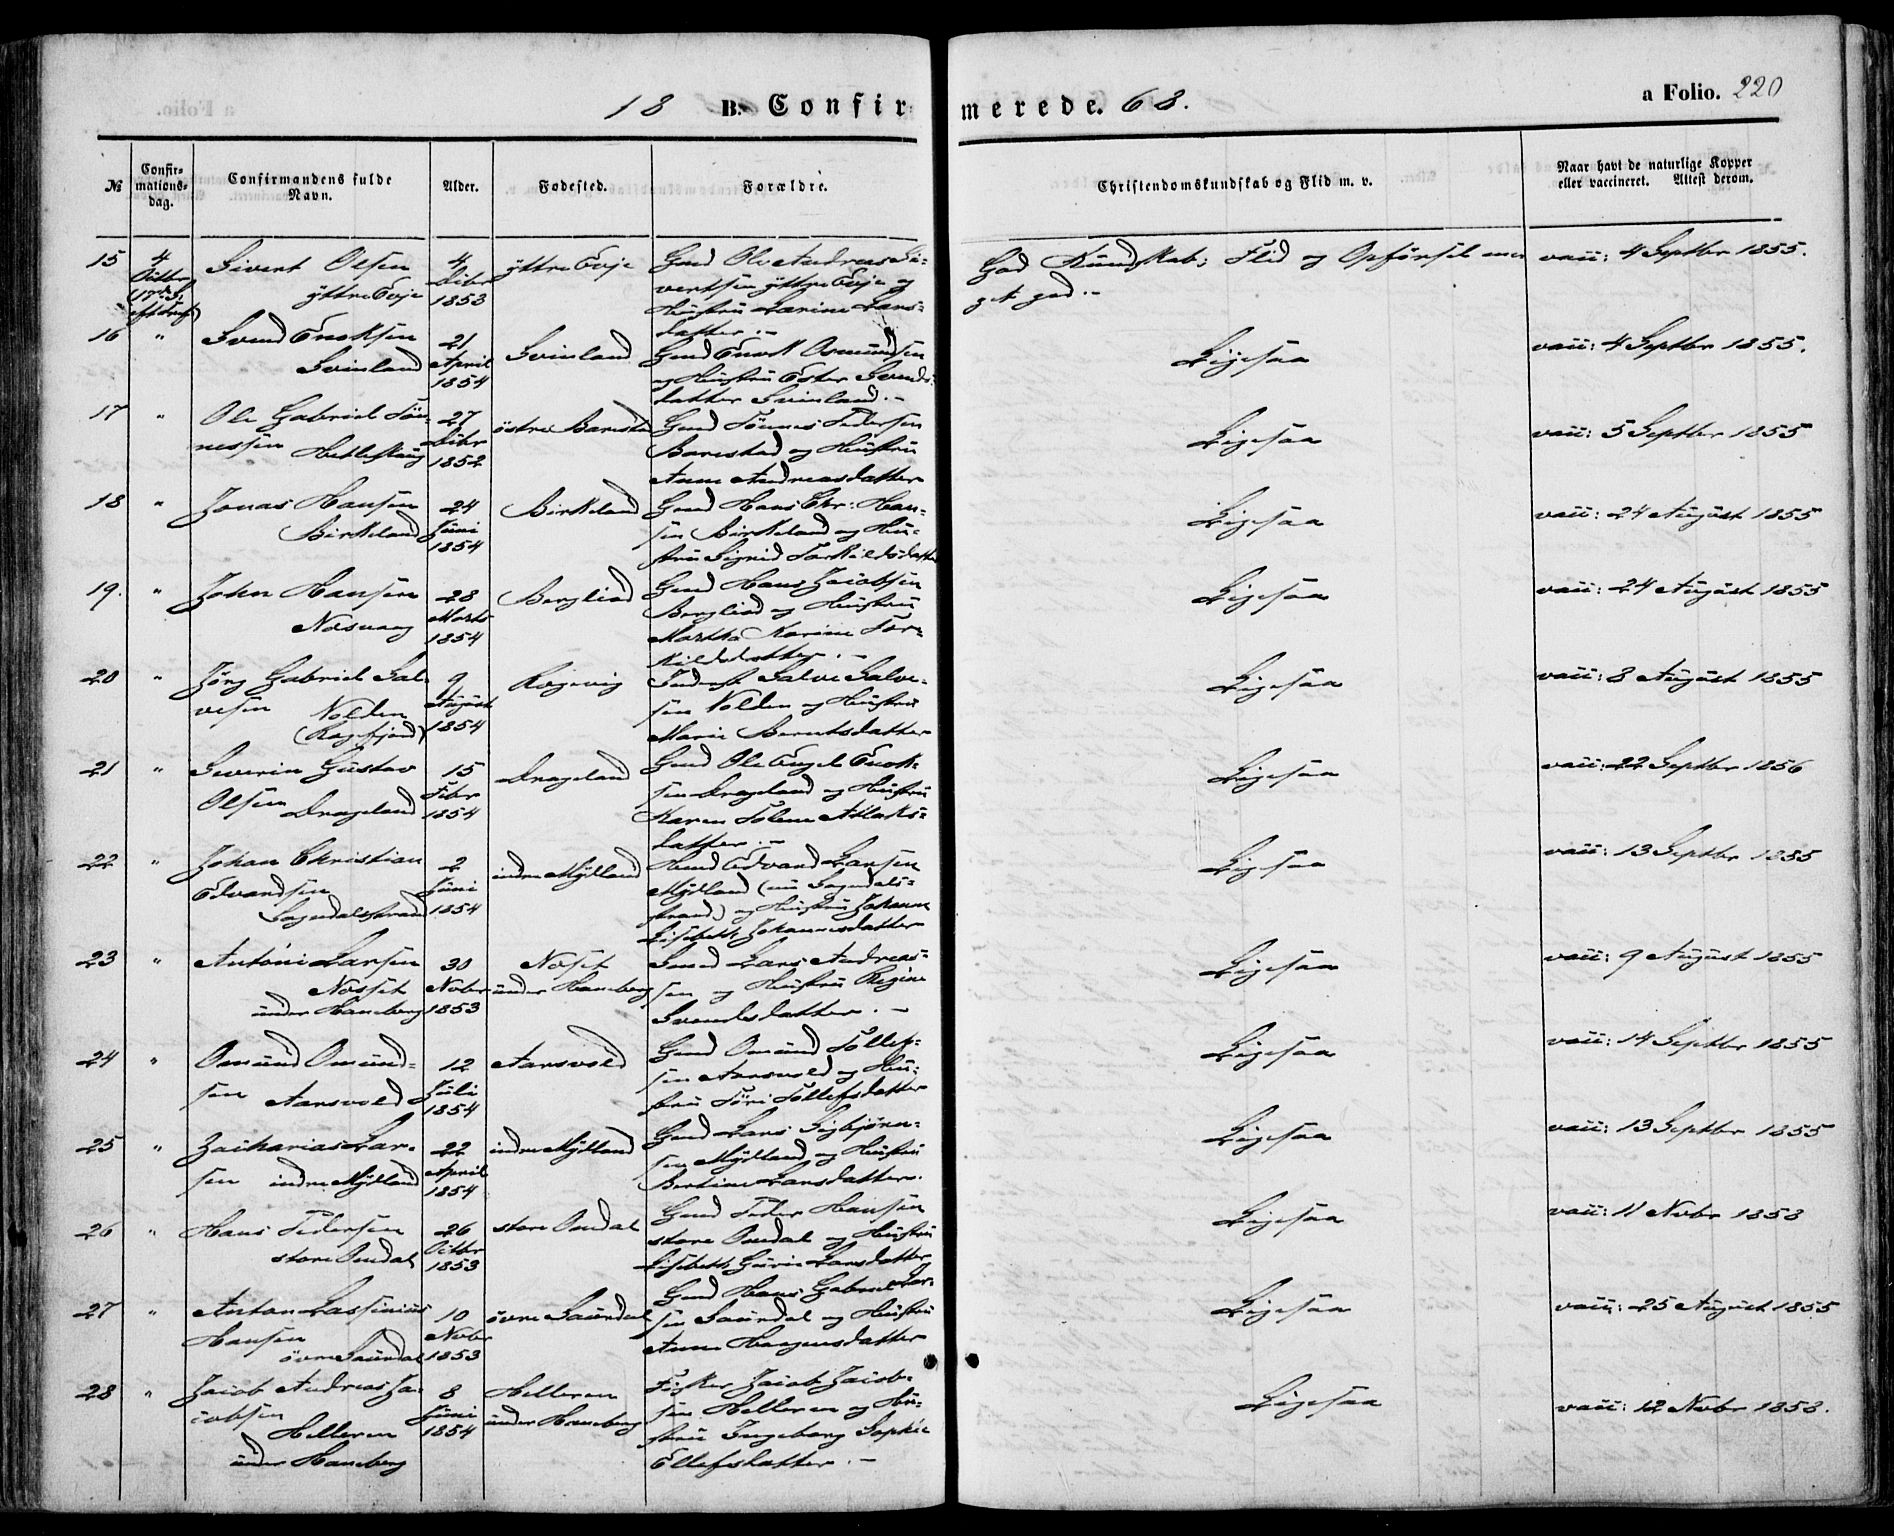 18 B. Confirmerede. 68.
a Folio. 220
№
Confirmationsdag.
Confirmandens fulde Navn.
Alder.
Fødested.
Forældre.
Christendomskundskab og Flid m. v.
Naar havt de naturlige Kopper eller vaccineret. Attest derom.
15 4 Octbr Sivert Olsen yttre Evje
4 Dcbr 1853
yttre Evje
Gmd Ole Andreas Sivertsen yttre Evje og Hustru Larine Larsdatter.-
God Kundskab; Flid og Opførsel meget god.-
vacc: 4 Septbr 1855.
16 " Svend Enoksen Svinland
21 April 1854
Svinland
Gmd Enok Osmundsen og Hustru Ester Svendsdatter Svinland.-
Ligesaa
vacc: 4 Septbr 1855.
17 " Ole Gabriel Tönnessen Hetleskaug
27 Dcbr 1852
östre Barstad
Gmd Tönnes Pedersen Barestad og Hustru Anne Andreasdatter
Ligesaa
vacc: 5 Septbr 1855
18 " Jonas Hansen Birkeland
24 Juni 1854
Birkeland
Gmd Hans Chr: Hansen Birkeland og Hustru Sigrid Torkildsdatter
Ligesaa
vacc: 24 August 1855
19. " John Hansen Nesvaag
28 Marts 1854
Bergliod
Gmd Hans Jacobsen Bergliod og Hustru Martha Karine Torkildsdatter.-
Ligesaa
vacc: 24 August 1855
20 " Jörg Gabriel Salvesen Nolden (Rægefjord)
9 August 1854
Inderst Salve Salvesen Nolden og Hustru Marie Berntsdatter
Ligesaa
vacc: 8 August 1855
21 " Severin Gustav Olsen Drageland
15 Febr 1854
Drageland
Gmd Ole Engel Enoksen Drageland og Hustru Karen Tolene Atlaksdatter.-
Ligesaa
vacc: 22 Septbr 1856
22 " Johan Christian Edvardsen Sogndalsstrand
2 Juni 1854
indre Mydland
Edvard Larsen Mydland (nu Sogndalsstrand) og Hustru Johanne Lisebeth Johannesdatter
Ligesaa
vacc: 13 Septbr 1855
23 " Antoni Larsen Nösset under Haneberg
30 Novbr 1853
Nöset under Haneberg
Lars Andreassen og Hustru Regine Svendsdatter.-
Ligesaa
vacc: 9 August 1855
24 " Omund Omundsen Aarsvold
12 Juli 1854
Aarsvold
Gmd Omund Tollefsen Aarsvold og Hustru Töri Tollefsdatter
Ligesaa
vacc: 14 Septbr 1855
25 " Zacharias Larsen indre Mydland
22 April 1854
indre Mydland
Gmd Lars Sigbjørnsen Mydland og Hustru Bertine Larsdatter.
Ligesaa
vacc: 13 Septbr 1855
26 " Hans Pedersen store Omdal
26 Octbr 1853
store Omdal
Gmd Peder Hansen store Omdal og Hustru Lisebeth Gurine Larsdatter
Ligesaa
vacc: 11 Novbr 1858
27 " Anton Lassenius Hansen övre Saurdal
10 Novbr 1853
övre Saurdal
Gmd Hans Gabriel Larsen Saurdal og Hustru Anne Haagensdatter
Ligesaa
vacc: 25 August 1855
28 " Jacob Andreas Jacobsen Helleren under Haneberg
8 Juni 1854
Helleren under Haneberg
Fisker Jacob Jacobsen Helleren og Hustru Ingeborg Sophie Ellefsdatter.-
Ligesaa
vacc: 12 Novbr 1858.